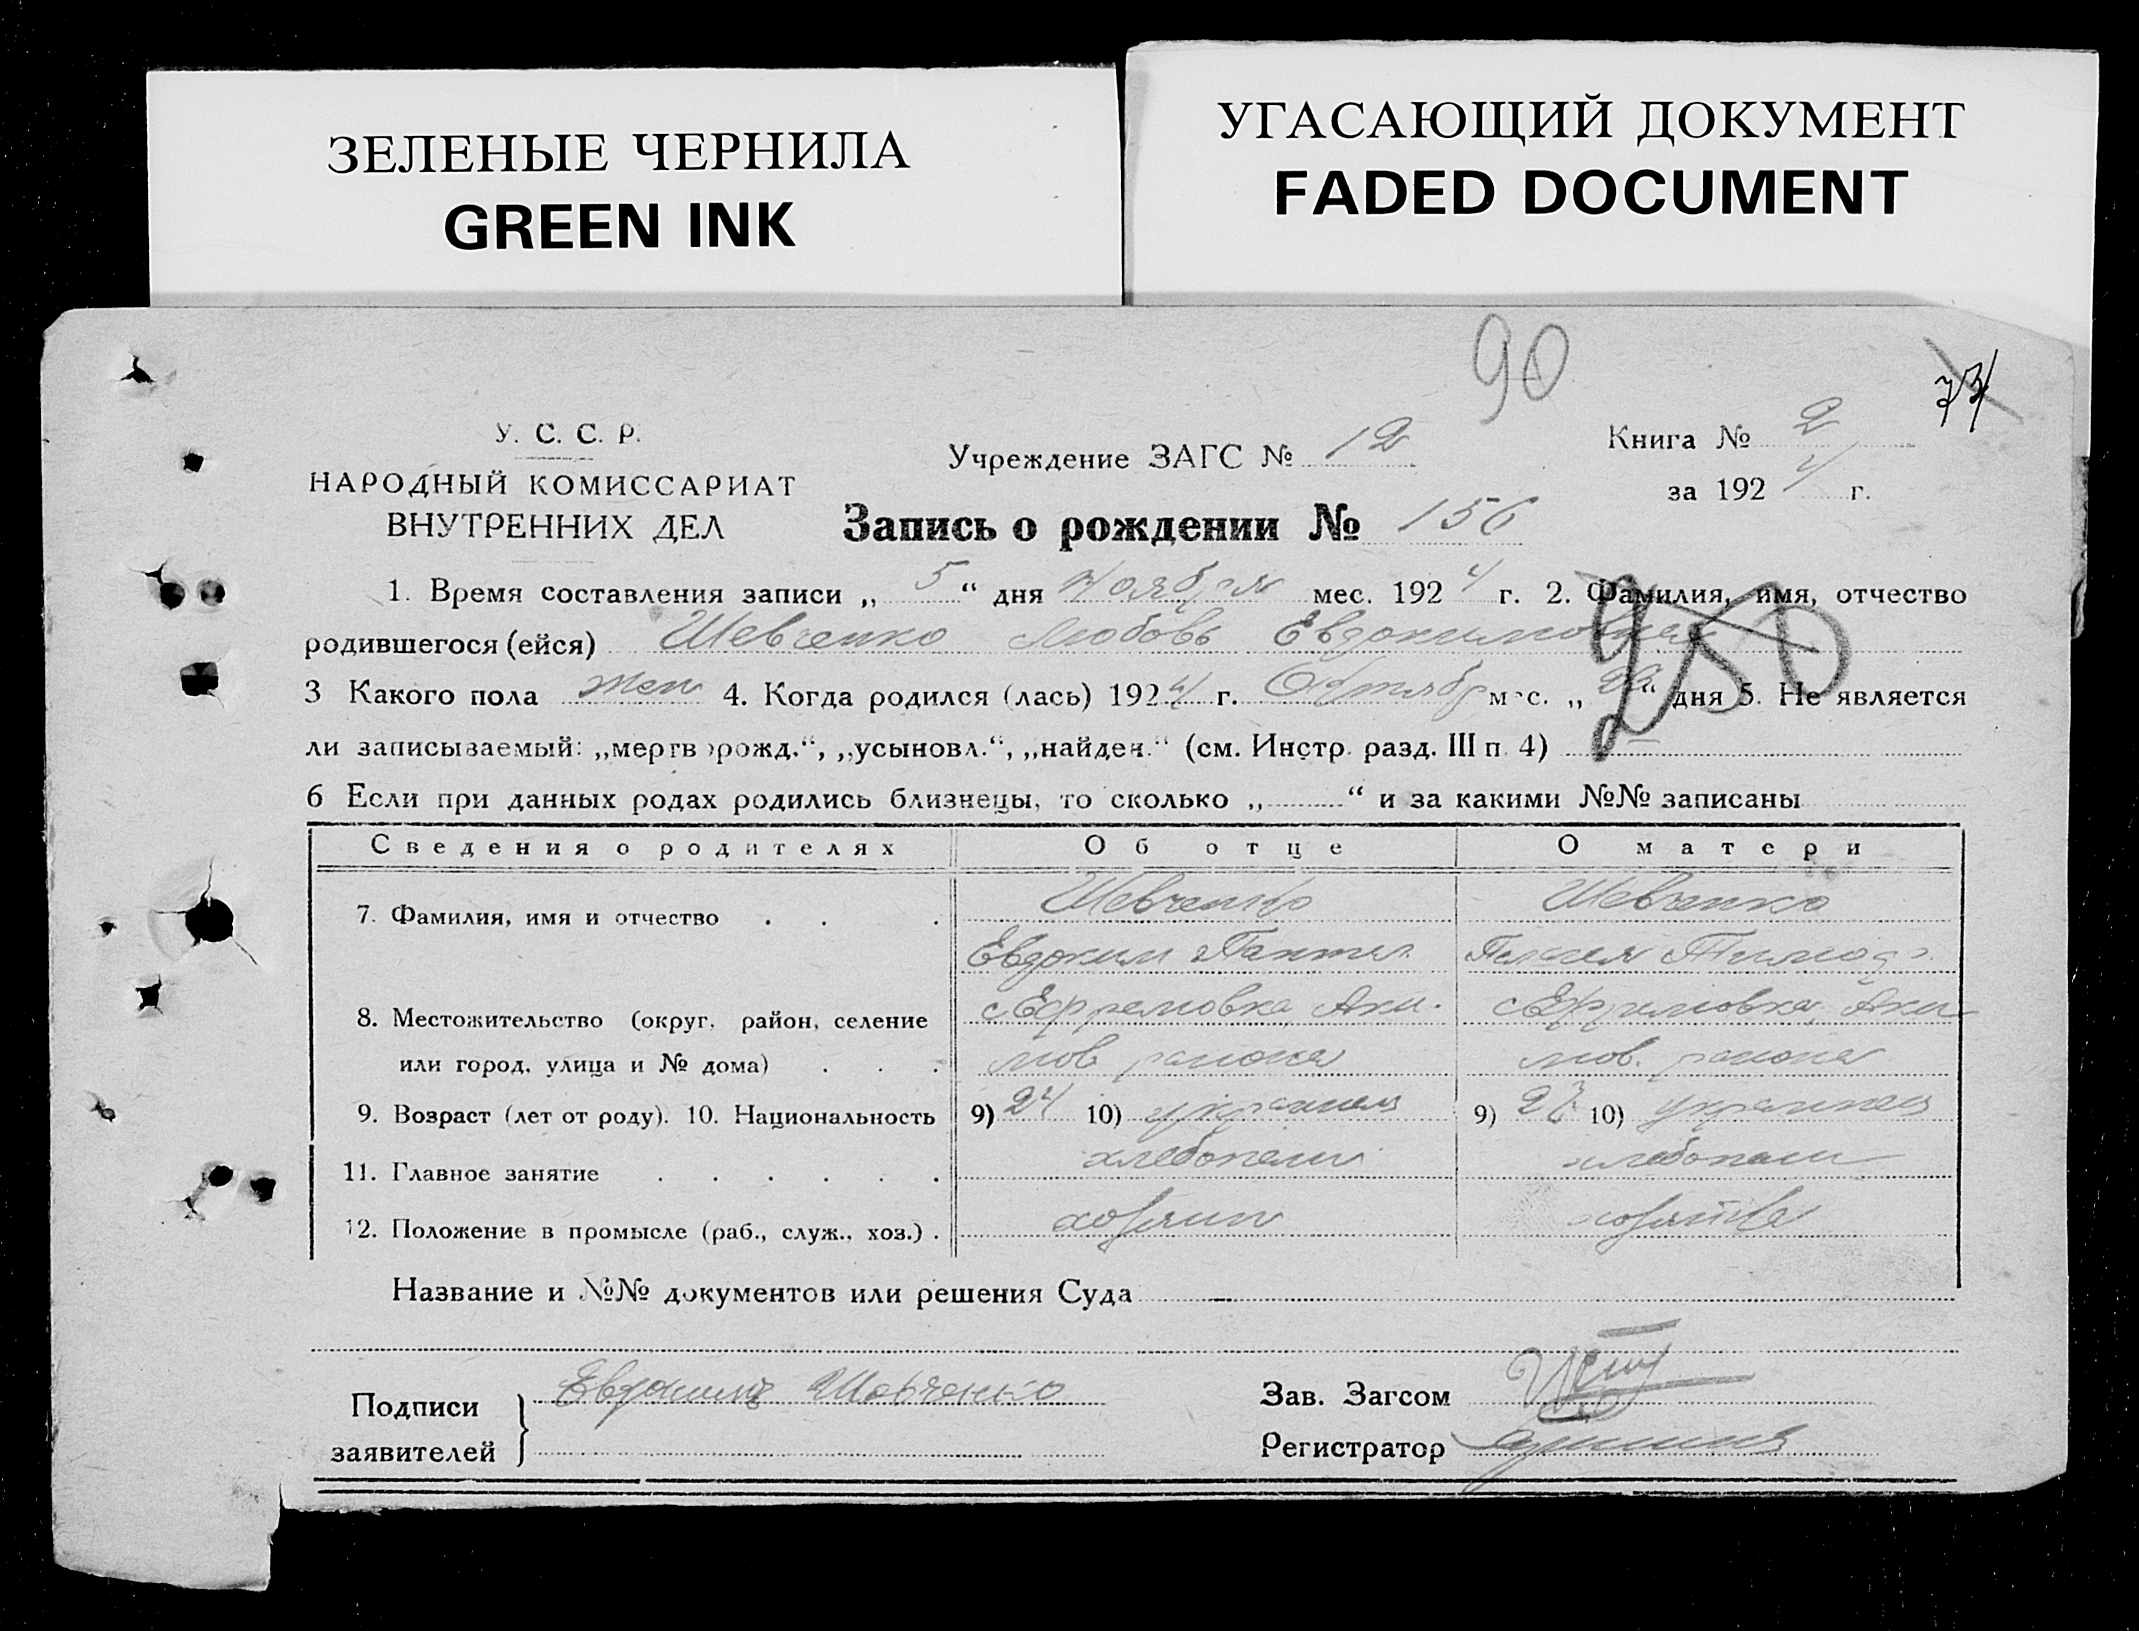 ЗЕЛЕНЫЕ ЧЕРНИЛА
GREEN INK
УГАСАЮЩИЙ ДОКУМЕНТ
FADED DOCUMENT
90
У. С. С. Р.
НАРОДНЫЙ КОМИССАРИАТ
ВНУТРЕННИХ ДЕЛ
Учреждение ЗАГС № 12
Книга № 2
за 192 4 г.
Запись о рождении № 156
1. Время составления записи „ 5 “ дня Ноября мес. 192 4 г. 2. Фамилия, имя, отчество
родившегося (ейся) Шевченко Любовь Евдокимовна
250
3 Какого пола жен 4. Когда родился (лась) 192 4 г. Октябр мес. „ “ дня 5. Не является
ли записываемый: „мертворожд.“, „усыновл.“, „найден.“ (см. Инстр. разд. III п 4) —
6 Если при данных родах родились близнецы, то сколько „ “ и за какими №№ записаны
Сведения о родителях Об отце О матери
7. Фамилия, имя и отчество Шевченко Шевченко
Евдоким Пантел.
8. Местожительство (округ, район, селение с Ефремовка, Аки- с Ефремовка, Аки
или город, улица и № дома) мов района мов. района
9. Возраст (лет от роду). 10. Национальность 9) 24 10) украинец 9) 10) украинец
11. Главное занятие хлебопаш хлебопаш
12. Положение в промысле (раб., служ., хоз.) хозяин хозяйка
Название и №№ документов или решения Суда —
Подписи Евдоким Шевченко
заявителей
Зав. Загсом
Регистратор